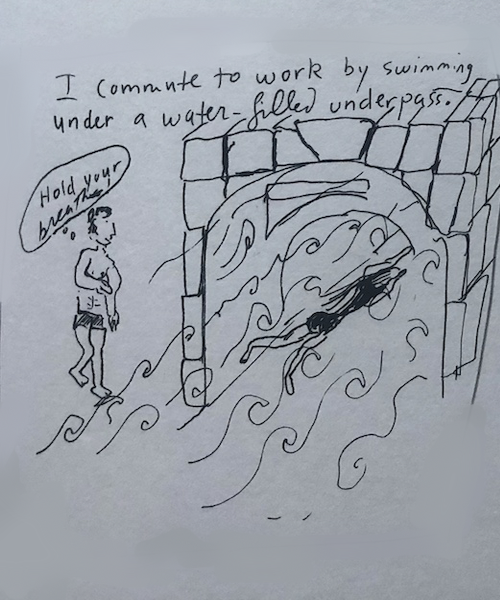 I commute to work by swimming
under a water-filled underpass.
Hold your
breathe!